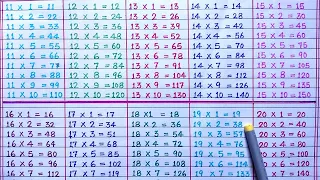 11 × 1 = 11 12 × 1 = 12 13 × 1 = 13 14 × 1 = 14 15 × 1 = 15
11 × 2 = 22 12 × 2 = 24 13 × 2 = 26 14 × 2 = 28 15 × 2 = 30
11 × 3 = 33 12 × 3 = 36 13 × 3 = 39 14 × 3 = 42 15 × 3 = 45
11 × 4 = 44 12 × 4 = 48 13 × 4 = 52 14 × 4 = 56 15 × 4 = 60
11 × 5 = 55 12 × 5 = 60 13 × 5 = 65 14 × 5 = 70 15 × 5 = 75
11 × 6 = 66 12 × 6 = 72 13 × 6 = 78 14 × 6 = 84 15 × 6 = 90
11 × 7 = 77 12 × 7 = 84 13 × 7 = 91 14 × 7 = 98 15 × 7 = 105
11 × 8 = 88 12 × 8 = 96 13 × 8 = 104 14 × 8 = 112 15 × 8 = 120
11 × 9 = 99 12 × 9 = 108 13 × 9 = 117 14 × 9 = 126 15 × 9 = 135
11 × 10 = 110 12 × 10 = 120 13 × 10 = 130 14 × 10 = 140 15 × 10 = 150
16 × 1 = 16 17 × 1 = 17 18 × 1 = 18 19 × 1 = 19 20 × 1 = 20
16 × 2 = 32 17 × 2 = 34 18 × 2 = 36 19 × 2 = 38 20 × 2 = 40
16 × 3 = 48 17 × 3 = 51 18 × 3 = 54 19 × 3 = 57 20 × 3 = 60
16 × 4 = 64 17 × 4 = 68 18 × 4 = 72 19 × 4 = 76 20 × 4 = 80
16 × 5 = 80 17 × 5 = 85 18 × 5 = 90 19 × 5 = 95 20 × 5 = 100
16 × 6 = 96 17 × 6 = 102 18 × 6 = 108 19 × 6 = 114 20 × 6 = 120
16 × 7 = 112 17 × 7 = 119 18 × 7 = 126 19 × 7 = 133 20 × 7 = 140